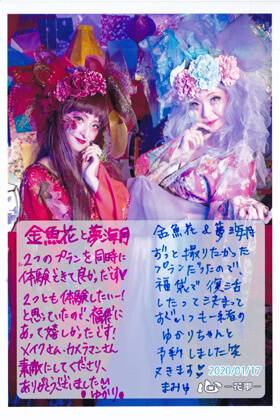 金魚花と夢海月
2つのプランを同時に
体験できて良かったです♡
2つとも体験したいー!
と思っていたので、福袋に
あって嬉しかったです!
メイクさん、カメラマンさん
素敵にしてくださり、
ありがとうございました
ゆかり♡
金魚花&夢海月
ずっと撮りたかった
プランだったので、
福袋で復活
したって決まって
すぐいつも一緒の
ゆかりちゃんと
予約しました笑
又きます♡
まみゅ
2020/01/17
心花夢